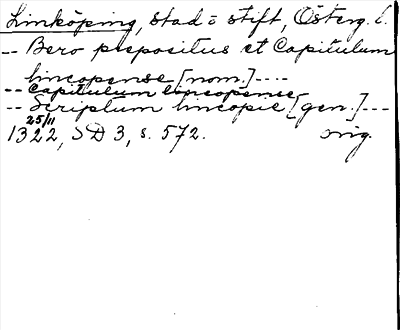 Linköping, stad o stift, Österg. l.
-- Bero prepositus et Capitulum
lincopense [nom.] ----
-- Capitulum lincopense
-- Scriptum lincopie [gen.] ---
25/11
1322, SD 3, s. 572. orig.